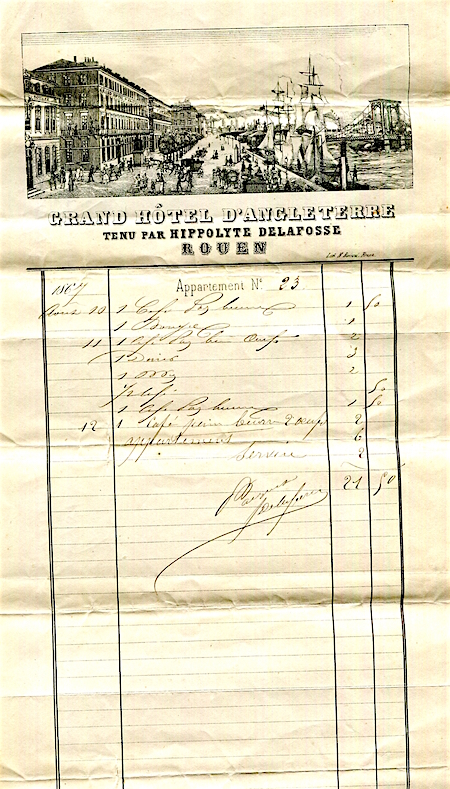 GRAND HÔTEL D'ANGLETERRE
TENU PAR HIPPOLYTE DELAFOSSE
ROUEN
1867 Appartement N° 23
Aout 10 1 Café Pain beurre 1 50
1 Bougie 1
11 1 Café Pain beurre oeufs 2
1 Diner 3
1 2
½ café 50
1 Café Pain beurre 1 50
12 1 Café pain beurre 2 oeufs 2
appartement 6
Service 2
21 50
Delafosse